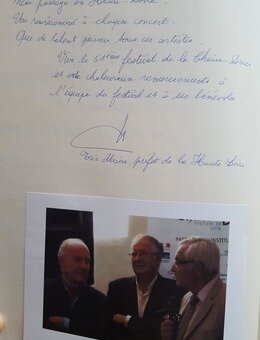 mon passage en Haute-Loire.
Un ravissement à chaque concert.
Que de talent parmi tous ces artistes
Vive le 51ème festival de la Chaise-Dieu
et mes chaleureux remerciements à
l'équipe du festival et à ses bénévoles
Eric Maire, préfet de la Haute Loire
FESTIVAL DE
2016
INSTITU